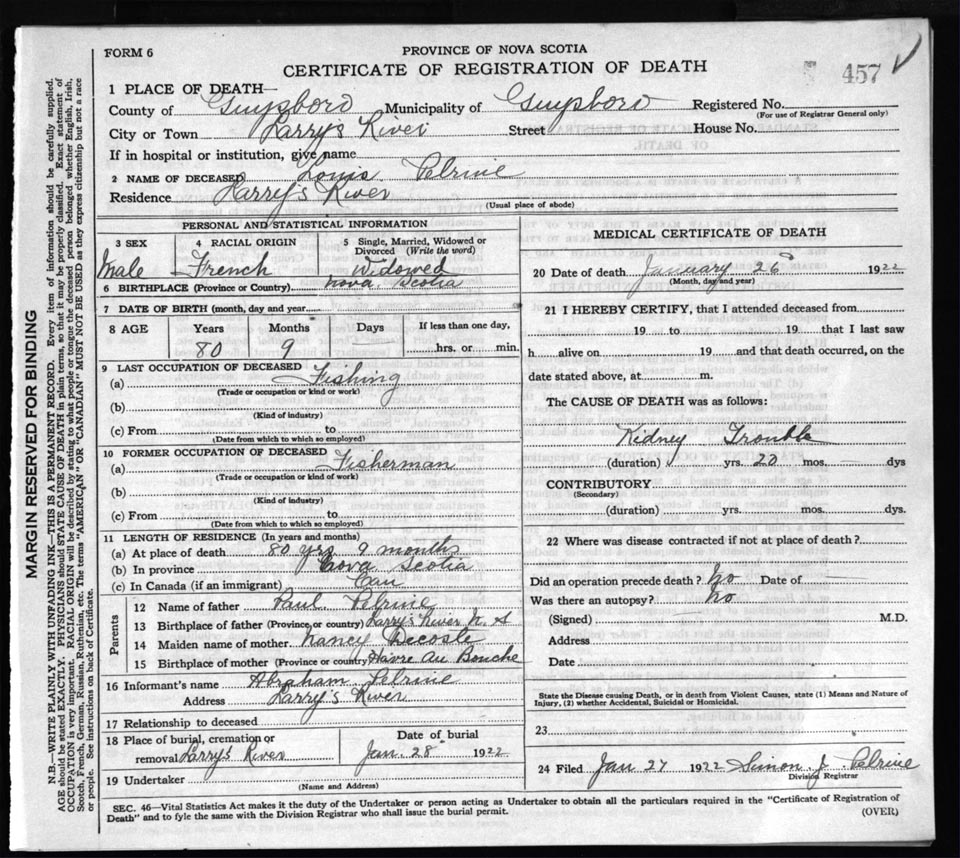 FORM 6
PROVINCE OF NOVA SCOTIA
CERTIFICATE OF REGISTRATION OF DEATH
457
1 PLACE OF DEATH—
County of Guysboro Municipality of Guysboro Registered No.
(For use of Registrar General only)
City or Town Larry's River Street House No.
If in hospital or institution, give name
2 NAME OF DECEASED Louis Pelrine
Residence Larry's River
(Usual place of abode)
PERSONAL AND STATISTICAL INFORMATION
3 SEX 4 RACIAL ORIGIN 5 Single, Married, Widowed or Divorced (Write the word)
Male French Widowed
6 BIRTHPLACE (Province or Country) Nova Scotia
7 DATE OF BIRTH (month, day and year)
8 AGE Years Months Days If less than one day,
80 9 hrs. or min.
9 LAST OCCUPATION OF DECEASED
(a) Fishing
(Trade or occupation or kind of work)
(b)
(Kind of industry)
(c) From to
(Date from which to which so employed)
10 FORMER OCCUPATION OF DECEASED
(a) Fisherman
(Trade or occupation or kind of work)
(b)
(Kind of industry)
(c) From to
(Date from which to which so employed)
11 LENGTH OF RESIDENCE (In years and months)
(a) At place of death 80 yrs 9 months
(b) In province Nova Scotia
(c) In Canada (if an immigrant) Can
Parents
12 Name of father Paul Pelrine
13 Birthplace of father (Province or country) Larry's River N. S
14 Maiden name of mother Nancy Decoste
15 Birthplace of mother (Province or country) Havre Au Bouche
16 Informant's name Abraham Pelrine
Address Larry's River
17 Relationship to deceased
18 Place of burial, cremation or removal Larry's River
Date of burial
Jan. 28 1922
19 Undertaker
(Name and Address)
MEDICAL CERTIFICATE OF DEATH
20 Date of death January 26 1922
(Month, day and year)
21 I HEREBY CERTIFY, that I attended deceased from
19 to 19 that I last saw
h alive on 19 and that death occurred, on the
date stated above, at m.
The CAUSE OF DEATH was as follows:
Kidney Trouble
(duration) yrs. 20 mos. dys
CONTRIBUTORY
(Secondary)
(duration) yrs. mos. dys.
22 Where was disease contracted if not at place of death?
Did an operation precede death? No Date of
Was there an autopsy? No
(Signed) M.D.
Address
Date
State the Disease causing Death, or in death from Violent Causes, state (1) Means and Nature of
Injury, (2) whether Accidental, Suicidal or Homicidal.
23
24 Filed Jan 27 1922 Simon J. Pelrine
Division Registrar
SEC. 46—Vital Statistics Act makes it the duty of the Undertaker or person acting as Undertaker to obtain all the particulars required in the "Certificate of Registration of
Death" and to fyle the same with the Division Registrar who shall issue the burial permit.
(OVER)
MARGIN RESERVED FOR BINDING
N.B.—WRITE PLAINLY WITH UNFADING INK—THIS IS A PERMANENT RECORD. Every item of information should be carefully supplied.
AGE should be stated EXACTLY. PHYSICIANS should STATE CAUSE OF DEATH in plain terms, so that it may be properly classified. Exact statement of
OCCUPATION is very important. RACIAL ORIGIN will be described by stating to what people or tongue the deceased person belonged whether English, Irish,
Scotch, French, German, Russian, Ruthenian, etc. The terms "AMERICAN" OR "CANADIAN" MUST NOT BE USED as they express citizenship but not a race
or people. See instructions on back of Certificate.